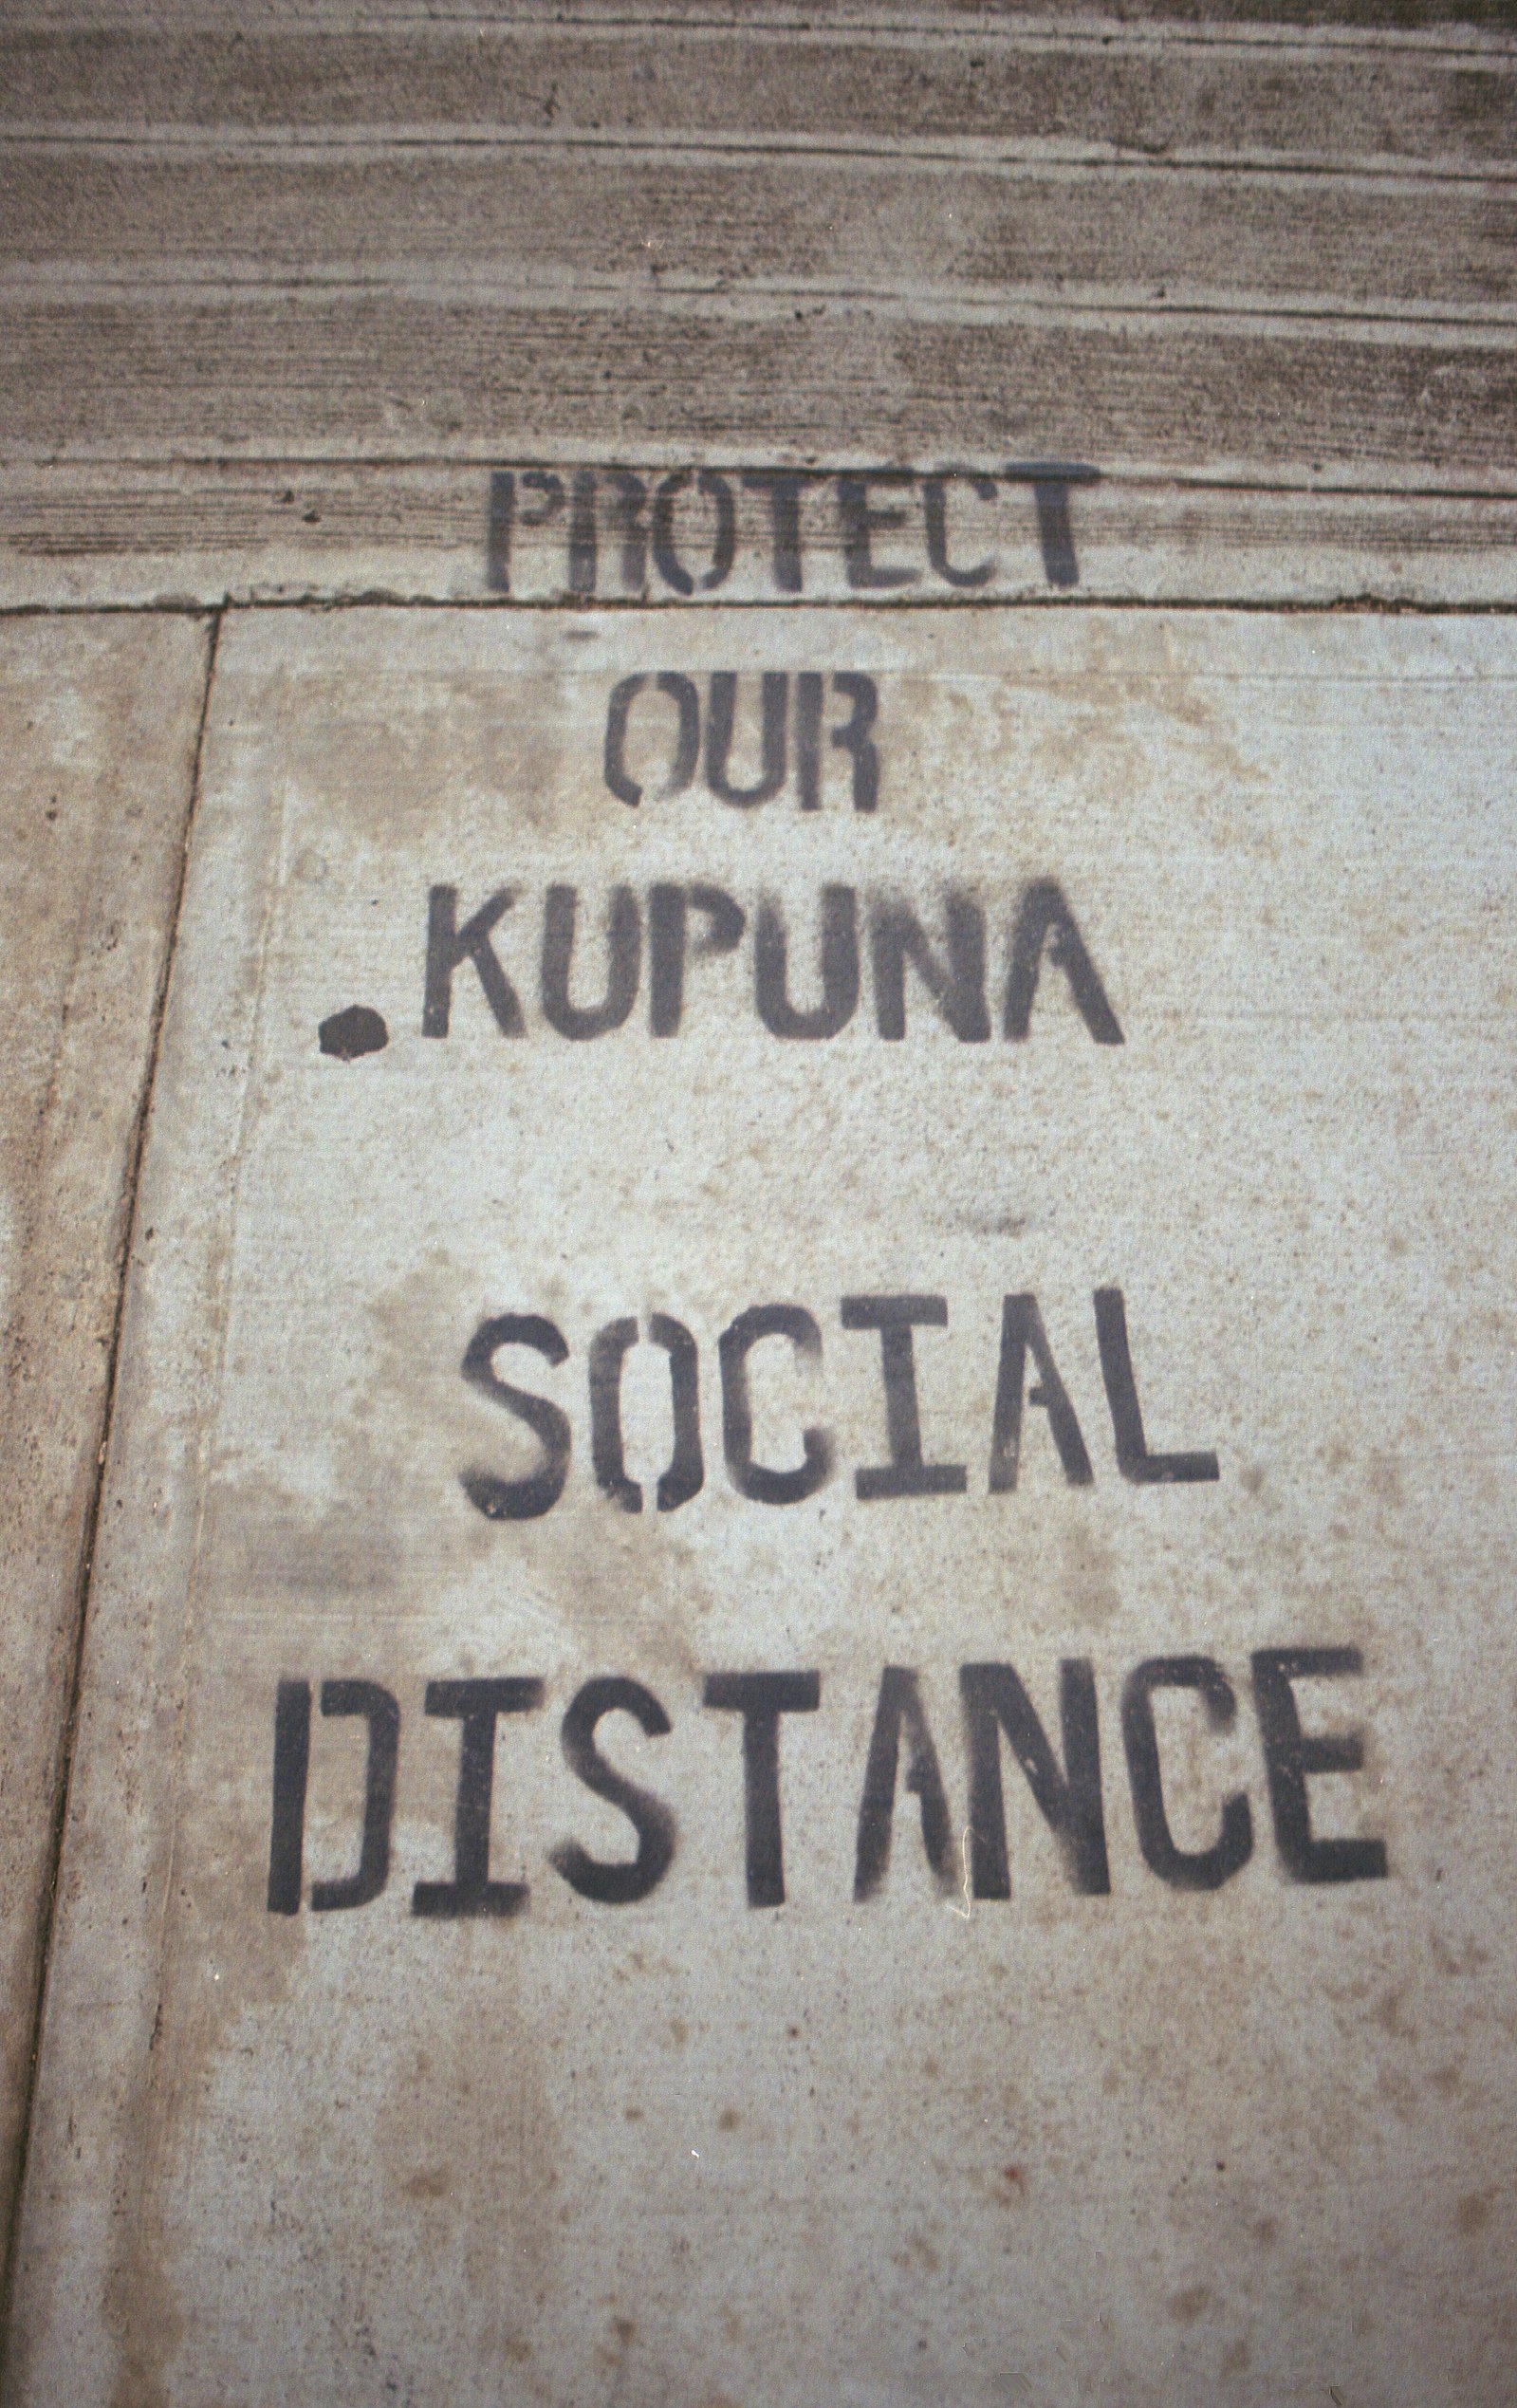 PROTECT
OUR
KUPUNA
SOCIAL
DISTANCE